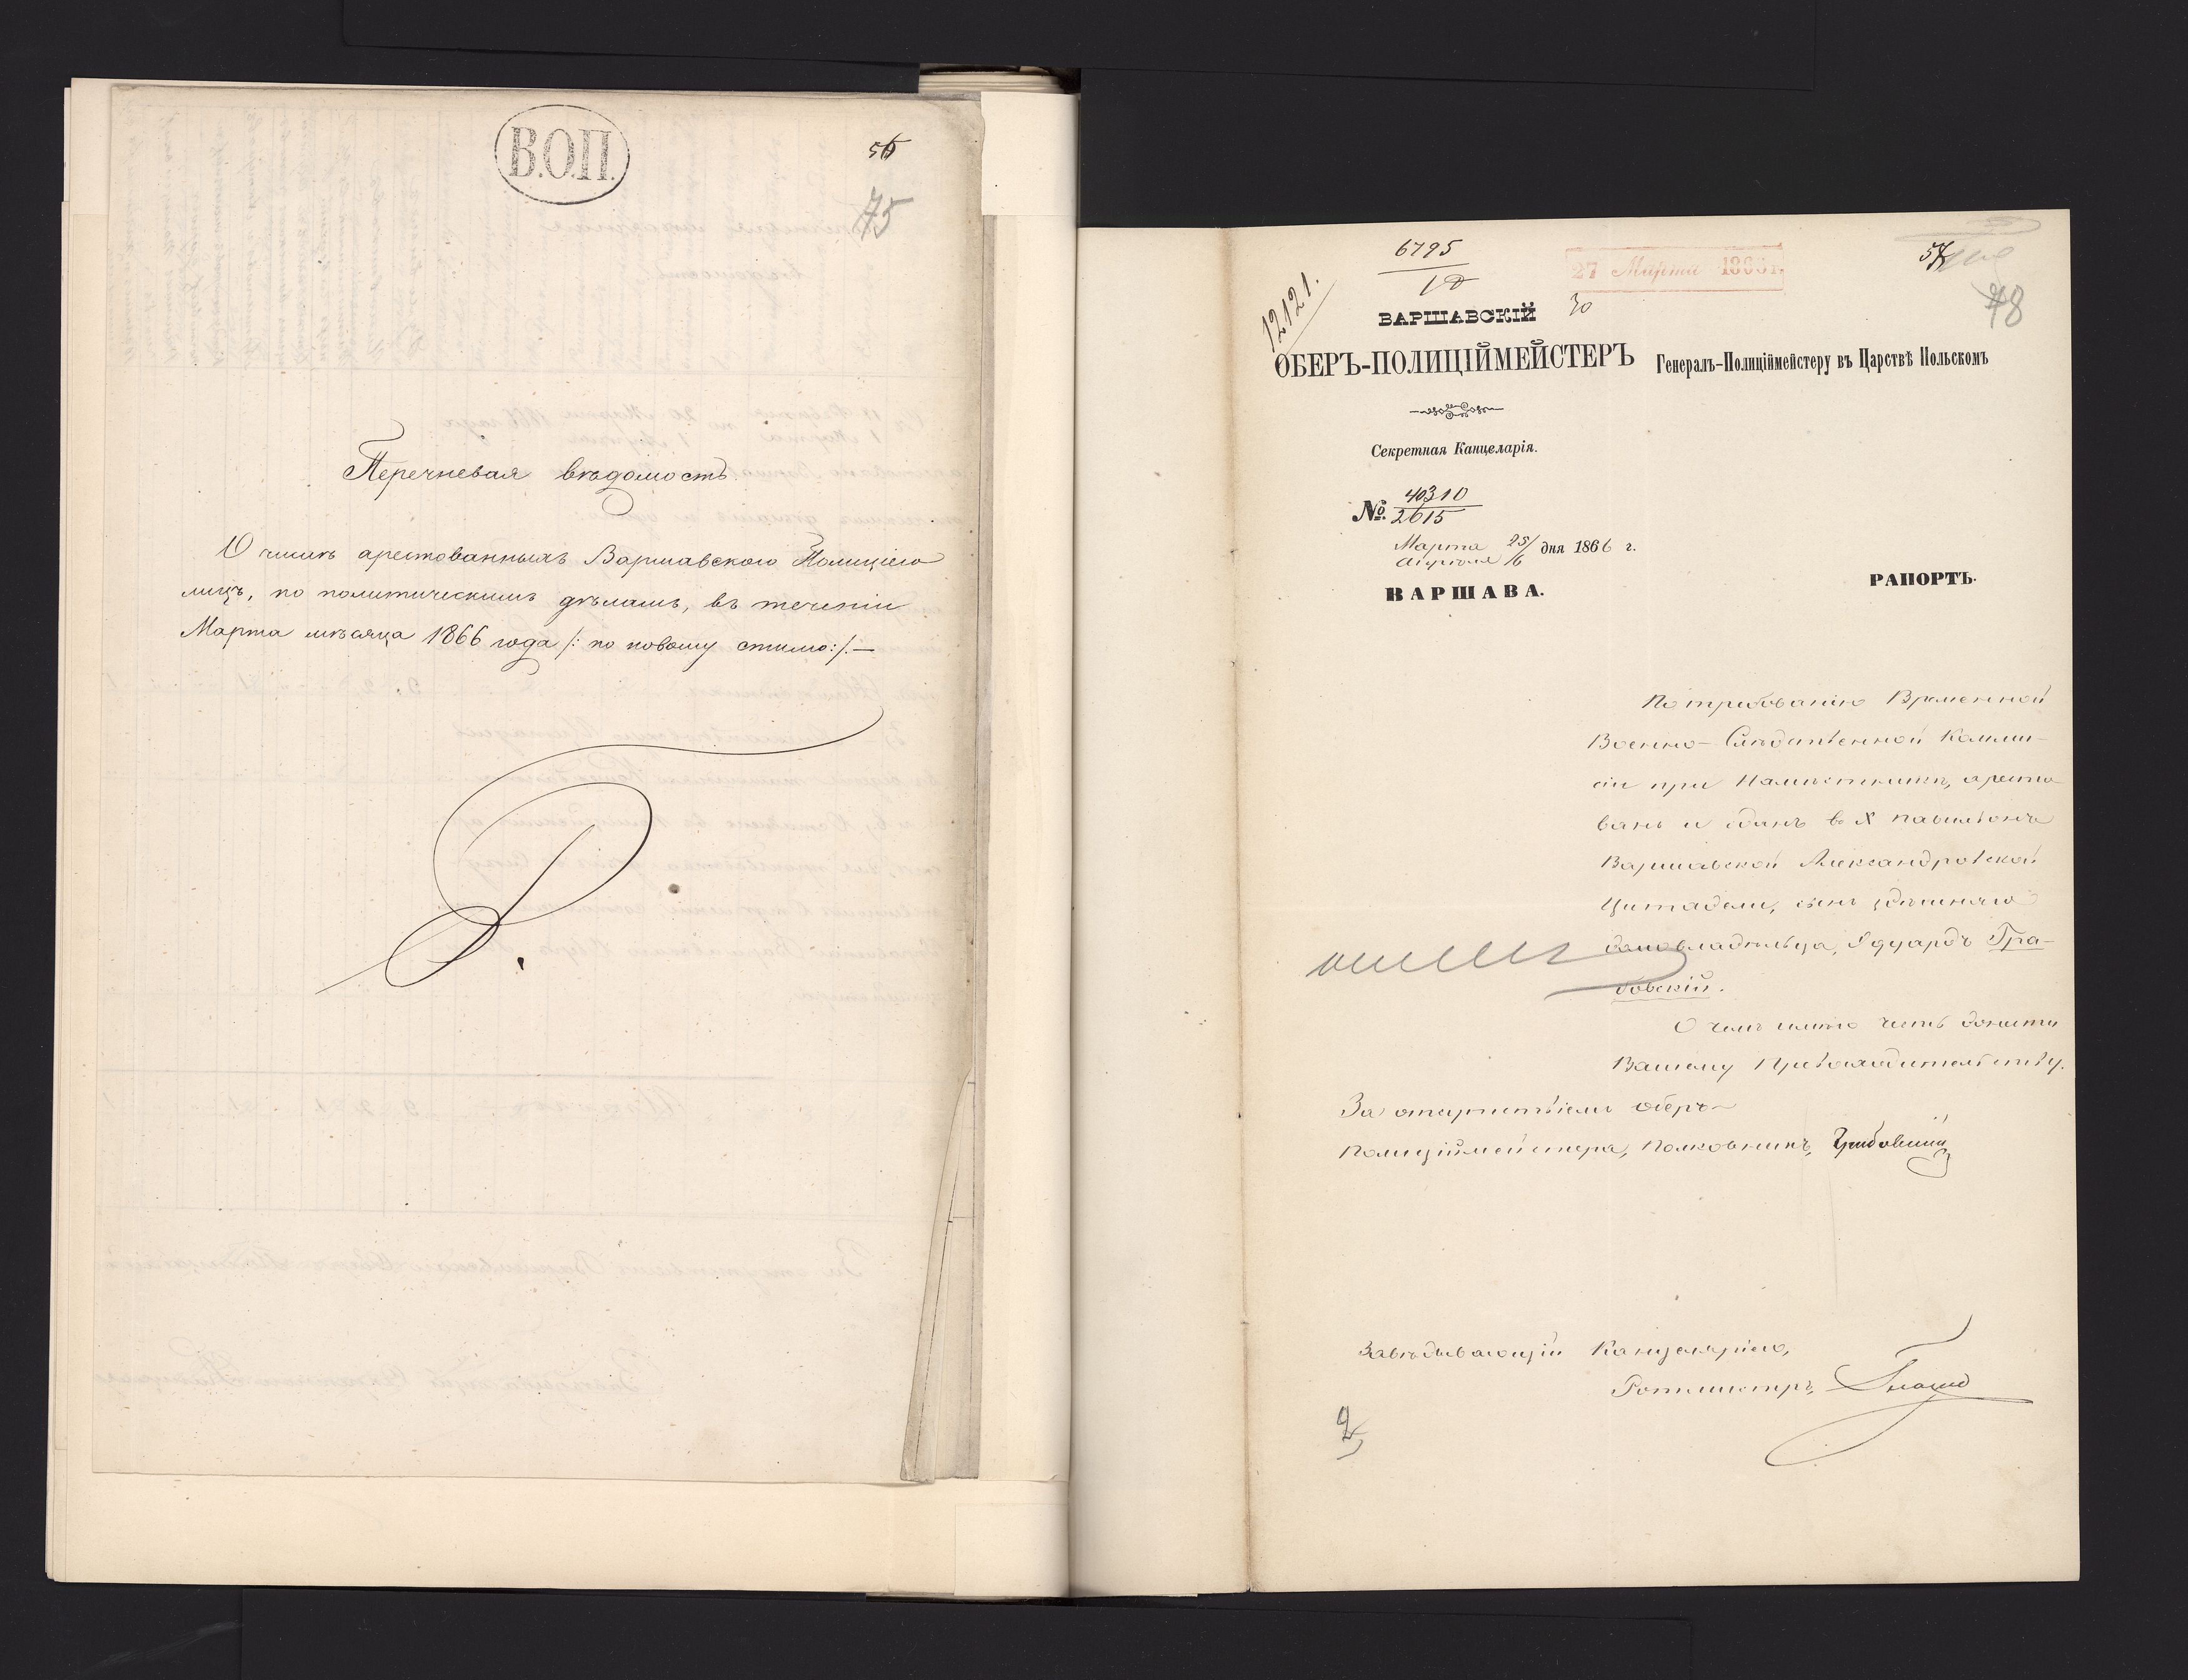 В.О.П.
56
75
Перечневая вѣдомость
О числѣ арестованныхъ Варшавскою Полиціею
лицъ, по политическимъ дѣламъ, въ теченіи
Марта мѣсяца 1866 года /: по новому стилю:/. —
6795
12121.
27 Марта 1866 г.
30
57
78
ВАРШАВСКІЙ
ОБЕРЪ-ПОЛИЦІЙМЕЙСТЕРЪ
Генералъ-Полиціймейстеру въ Царствѣ Польскомъ
Секретная Канцелярія.
№ 40310/2615
Марта 25/Апрѣля 6 дня 1866 г.
ВАРШАВА.
РАПОРТЪ.
По требованію Временной
Военно-Слѣдственной Комми-
сіи при Намѣстникѣ, аресто-
ванъ и сданъ в X павильонъ
Варшавской Александровской
Цитадели, сынъ здѣшняго
домовладѣльца, Эдуардъ Гра-
бовскій.
О чемъ имѣю честь донести
Вашему Превосходительству.
За отсутствіемъ Оберъ-
Полиціймейстера, Полковникъ,
Завѣдывающій Канцеляріею,
Ротмистръ,
2